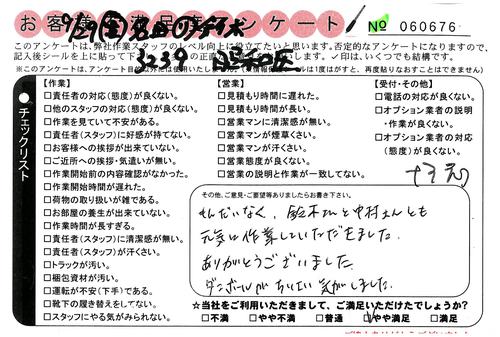 お客様満足度アンケート
No 060676
このアンケートは、弊社作業スタッフのレベル向上に役立てたいと思います。否定的なアンケートになりますので、
記入後シールを上に貼って下
✓印は、いくつでも結構です。
【作業】
□責任者の対応(態度)が良くない。
□他のスタッフの対応(態度)が良くない。
□作業を見ていて不安がある。
□責任者(スタッフ)に好感が持てない。
□お客様への挨拶が出来ていない。
□ご近所への挨拶・気遣いが無い。
□作業開始前の内容確認がなかった。
□作業開始時間が遅れた。
□荷物の取り扱いが雑である。
□お部屋の養生が出来ていない。
□作業時間が長すぎる。
□責任者(スタッフ)に清潔感が無い。
□責任者(スタッフ)が汗くさい。
□トラックが汚い。
□梱包資材が汚い。
□運転が不安(下手)である。
□靴下の履き替えをしてない。
□スタッフにやる気がみられない。
【営業】
□見積もり時間に遅れた。
□見積もり時間が長い。
□営業マンに清潔感が無い。
□営業マンが煙草くさい。
□営業マンが汗くさい。
□営業態度が良くない。
□営業の説明と作業が一致してない。
【受付・その他】
□電話の対応が良くない。
□オプション業者の説明
・作業が良くない。
□オプション業者の対応
(態度)が良くない。
チェックリスト
その他、ご意見・ご要望等ありましたらお書き下さい。
もんだいなく、鈴木さんと中村さんとも
元気に作業していただきました。
ありがとうございました。
ダンボールがちいさい気がしました。
☆当社をご利用いただきまして、ご満足いただけたでしょうか?
□不満 □やや不満 □普通 □やや満足 □満足